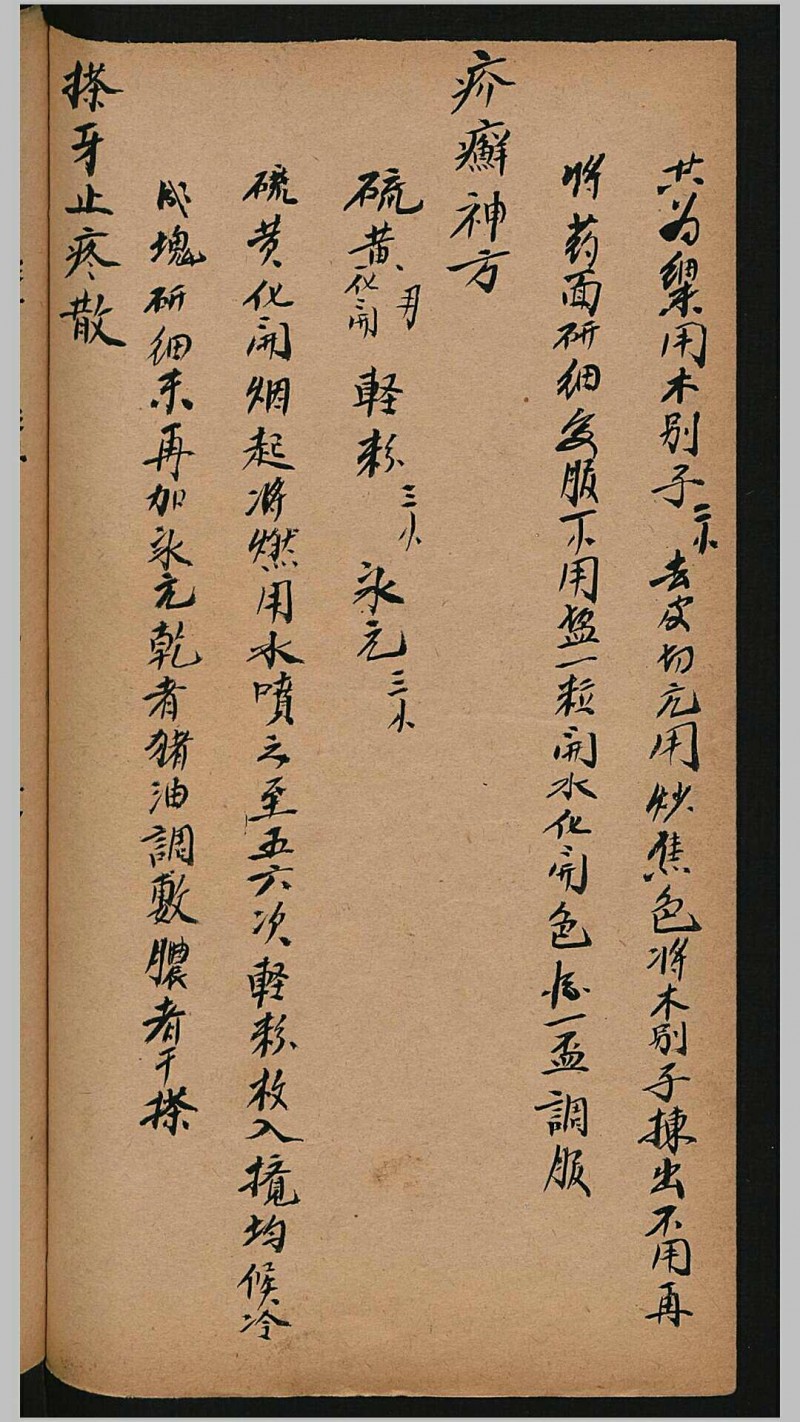 共为細末用木别子三小去皮切元用炒焦色将木别子揀出不用再
将药面研细服不用盐一粒開水化開色一盃調服
疥癬神方
硫黄化開軽粉三小永元三小
硫黄化開烟起将燃用水噴之至五六次軽粉放入攪均候冷
成塊研细末再加永元乾者猪油調敷膿者干搽
搽牙止疼散